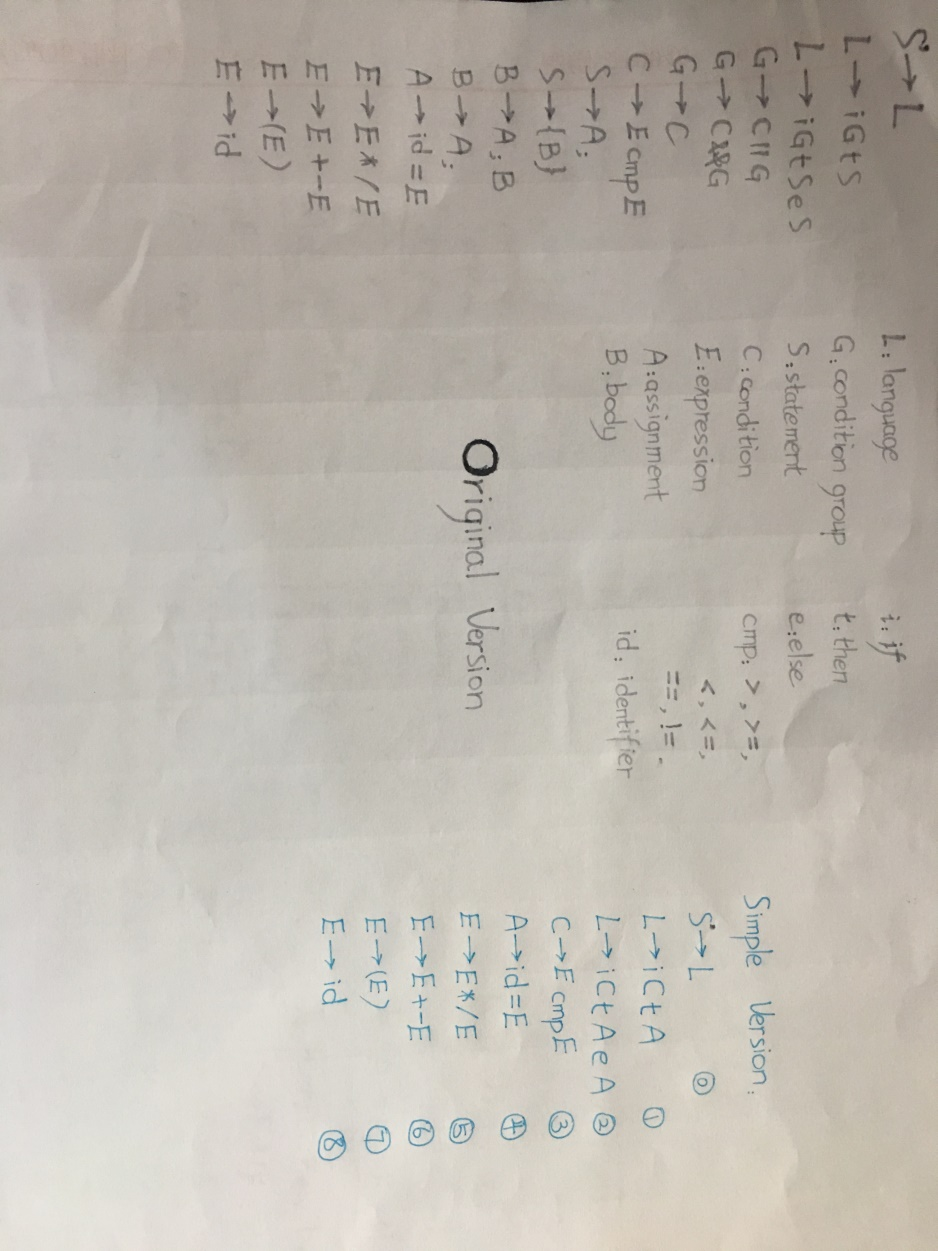 S'→L
L→iGtS
L→iGtSeS
G→C||G
G→C&&G
G→C
C→E cmp E
S→A;
S→{B}
B→A;B
B→A;
A→id=E
E→E*/E
E→E+-E
E→(E)
E→id
L: language
G: condition group
S: statement
C: condition
E: expression
A: assignment
B: body
i: if
t: then
e: else
cmp: >, >=,
<, <=,
==, !=.
id: identifier
Original Version
Simple Version:
S'→L ⓪
L→iCtA ①
L→iCtAeA ②
C→E cmp E ③
A→id=E ④
E→E*/E ⑤
E→E+-E ⑥
E→(E) ⑦
E→id ⑧